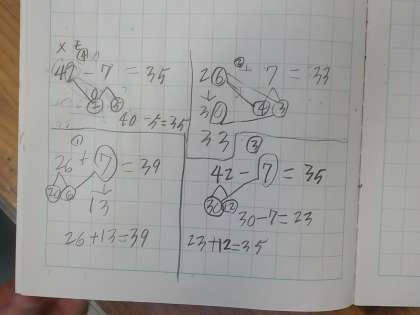 ④
42 - 7 = 35
2 5
40 - 5 = 35
②
26 + 7 = 33
4 3
30
33
①
26 + 7 = 39
20 6
13
26 + 13 = 39
③
42 - 7 = 35
30 12
30 - 7 = 23
23 + 12 = 35